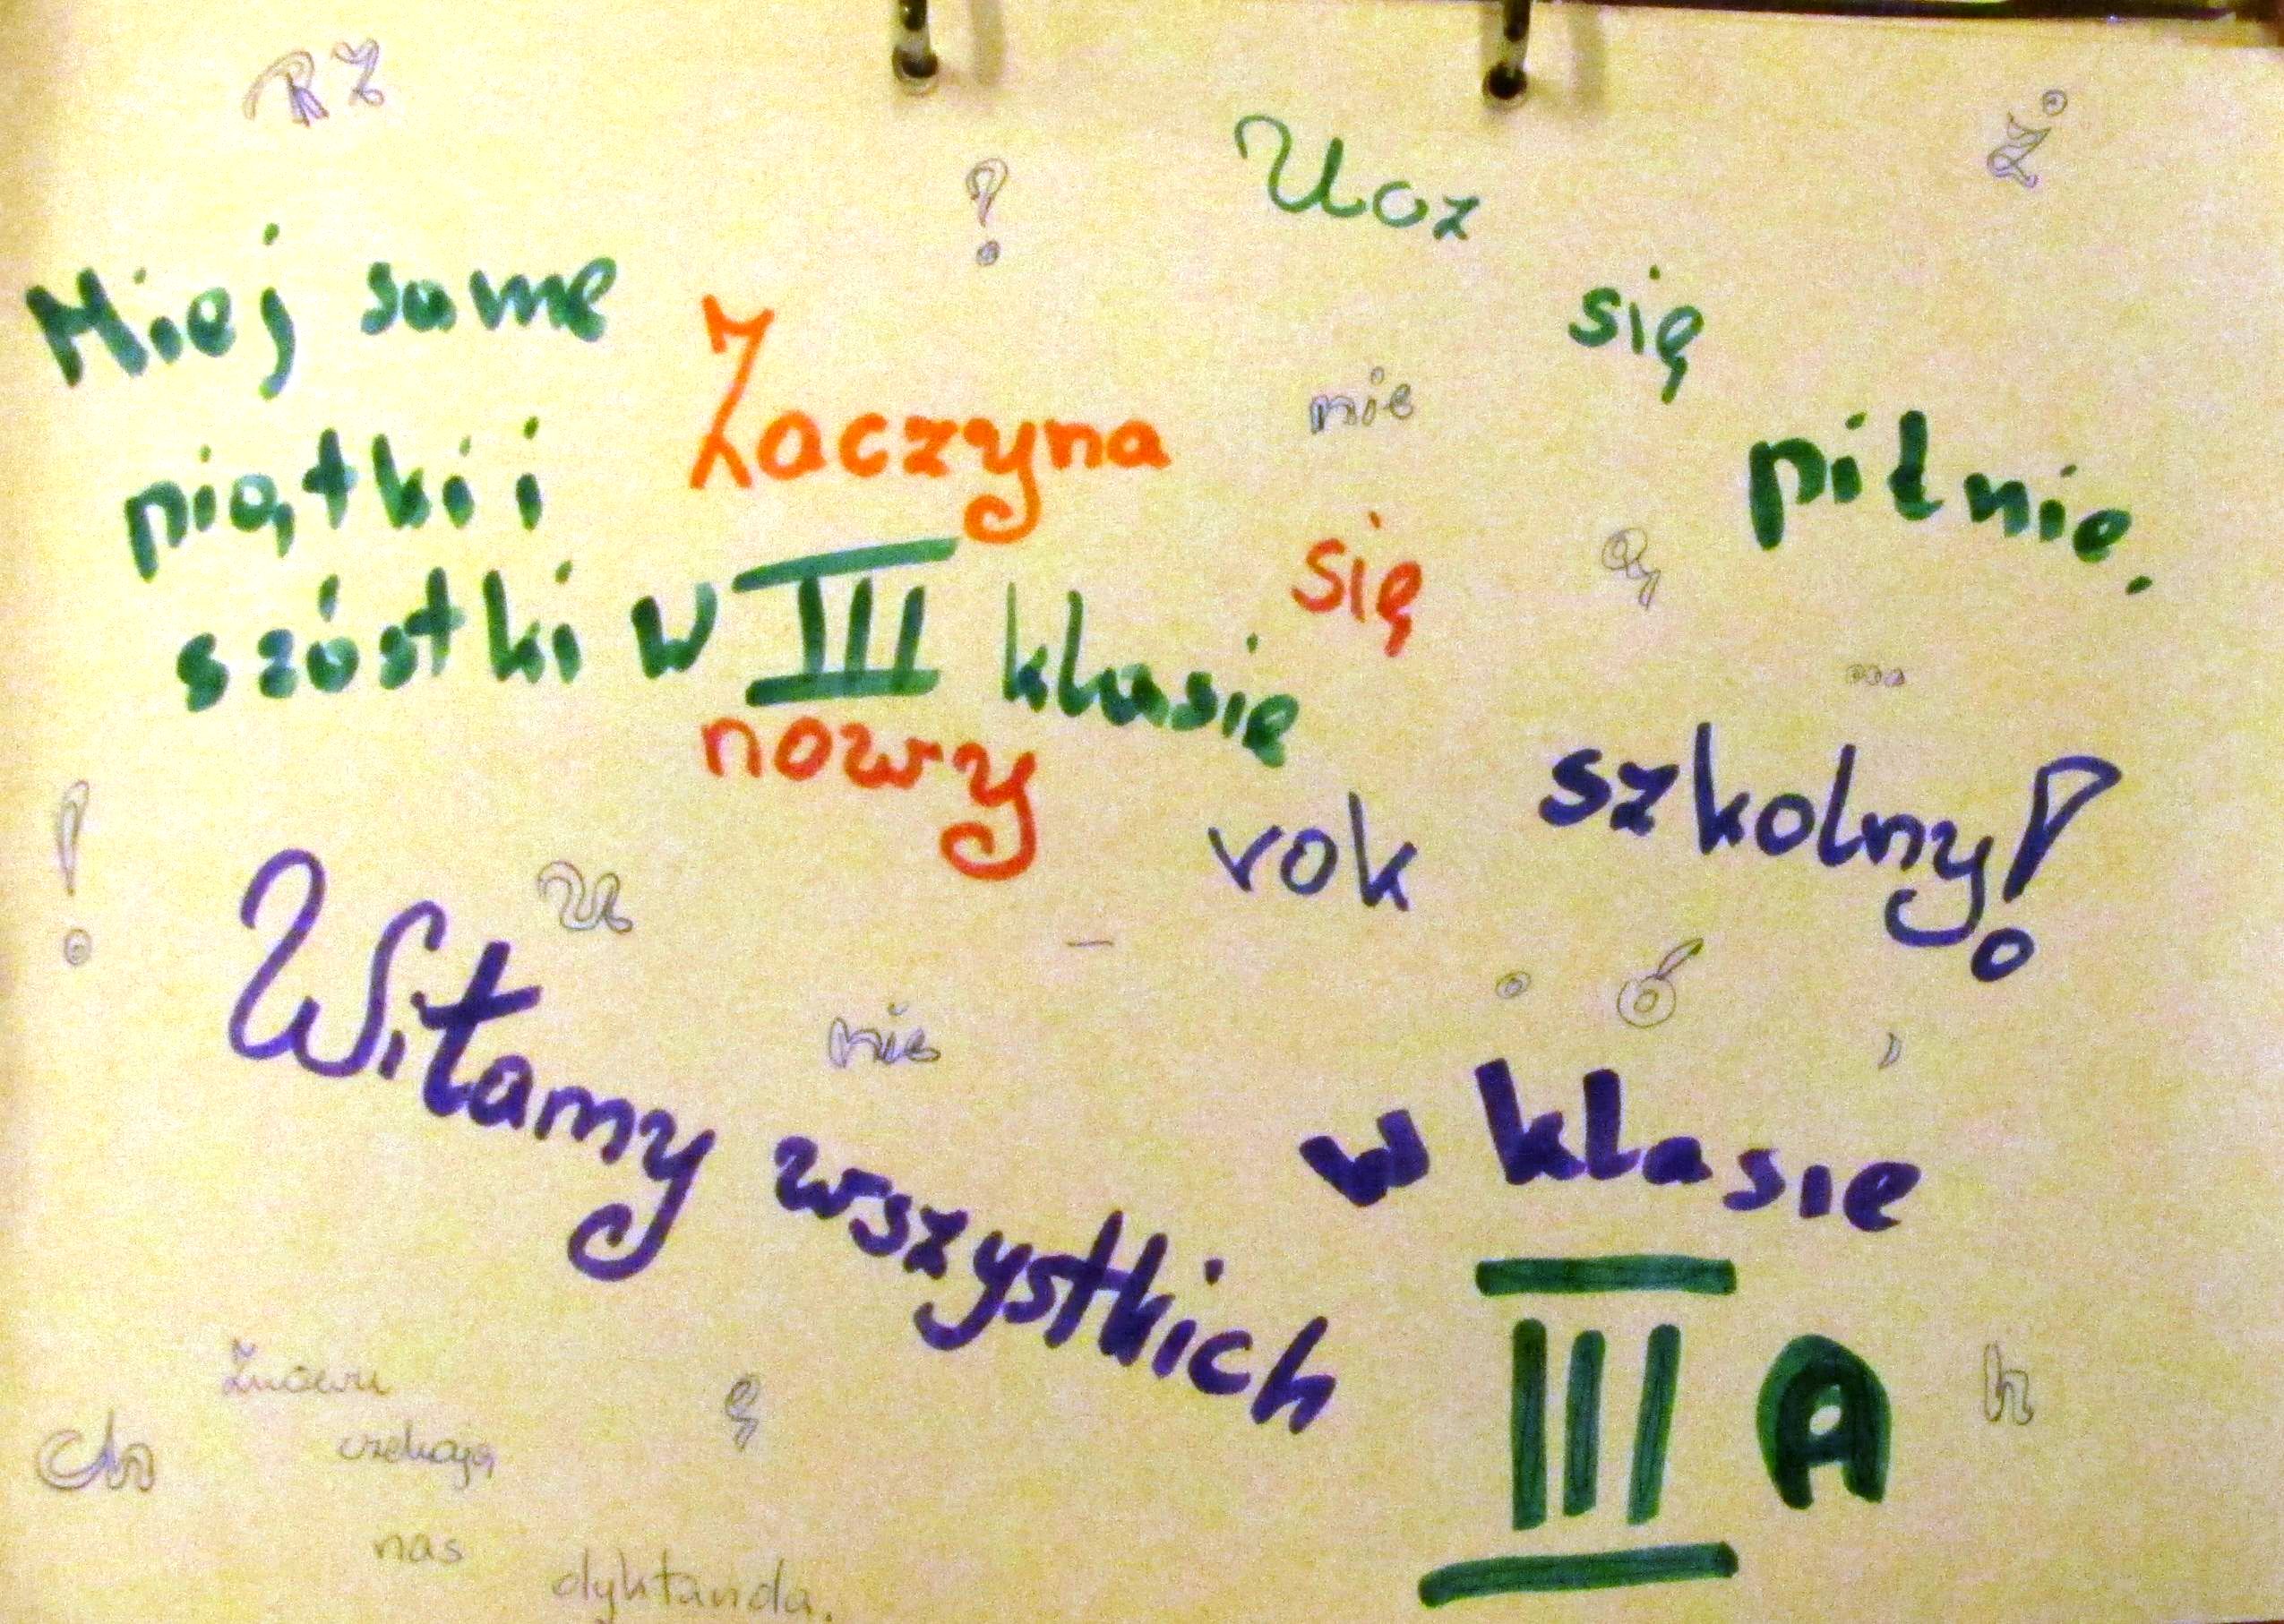 RZ
Ż
?
Ucz
się
pilnie.
Miej same
piątki i
szóstki w III klasie
Zaczyna
się
nowy
rok
szkolny!
nie
ą
...
!
u
–
nie
ó
,
Witamy wszystkich
w klasie
III A
h
ch
ę
Znowu
czekają
nas
dyktanda.